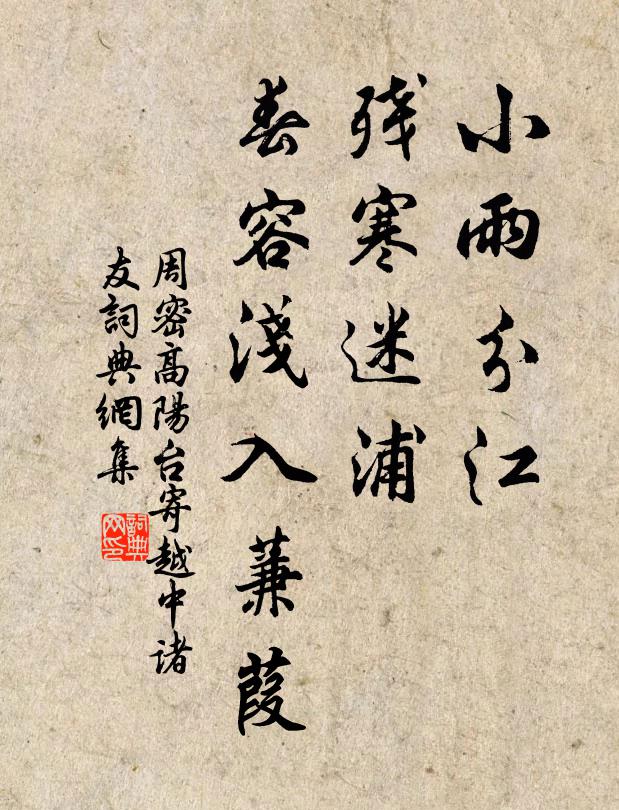 小雨分江
残寒迷浦
春容淺入蒹葭
周密高陽台寄越中诸
友詞典網集
詞典
网印